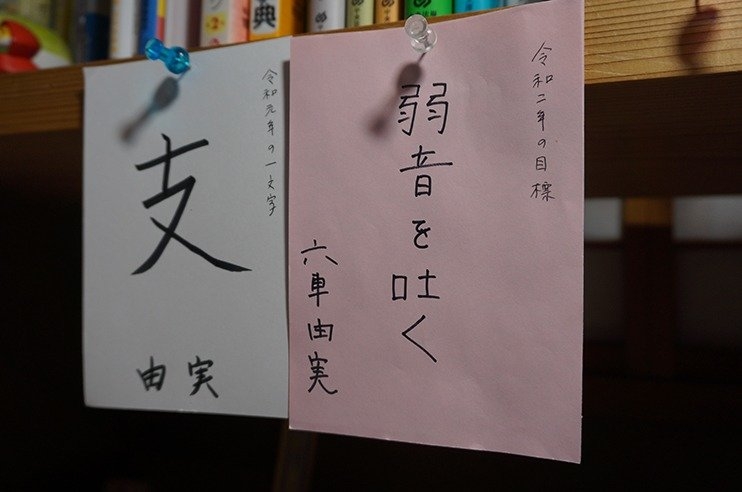 令和二年の目標
弱音を吐く
六車由実
令和元年の一文字
支
由実
典